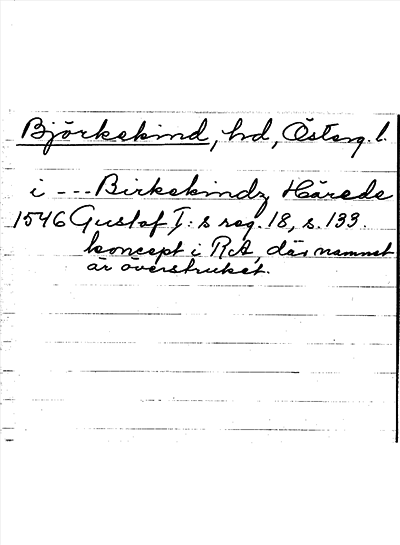 Björkekind, hd, Österg. l.
i --- Birkekindz Härede
1546 Gustaf I:s reg. 18, s. 133.
koncept i RA, där namnet
är överstruket.